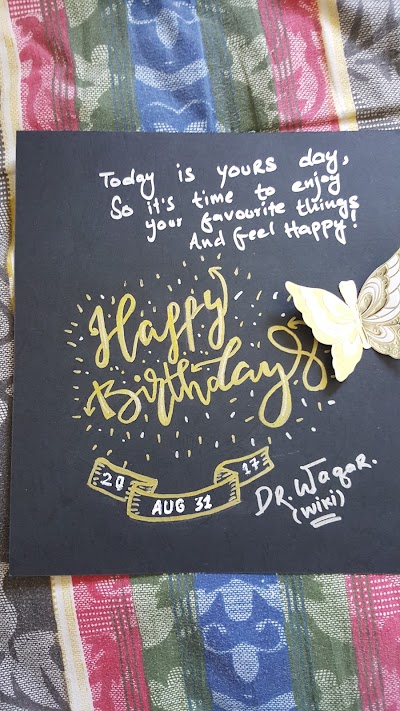 Today is yours day,
So it's time to enjoy
your favourite things
And feel Happy!
Happy
Birthday
20 AUG 31 17
DR. Waqar.
(Wiki)